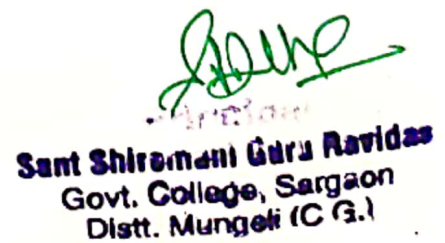 Sant Shiromani Guru Ravidas
Govt. College, Sargaon
Distt. Mungeli (C.G.)